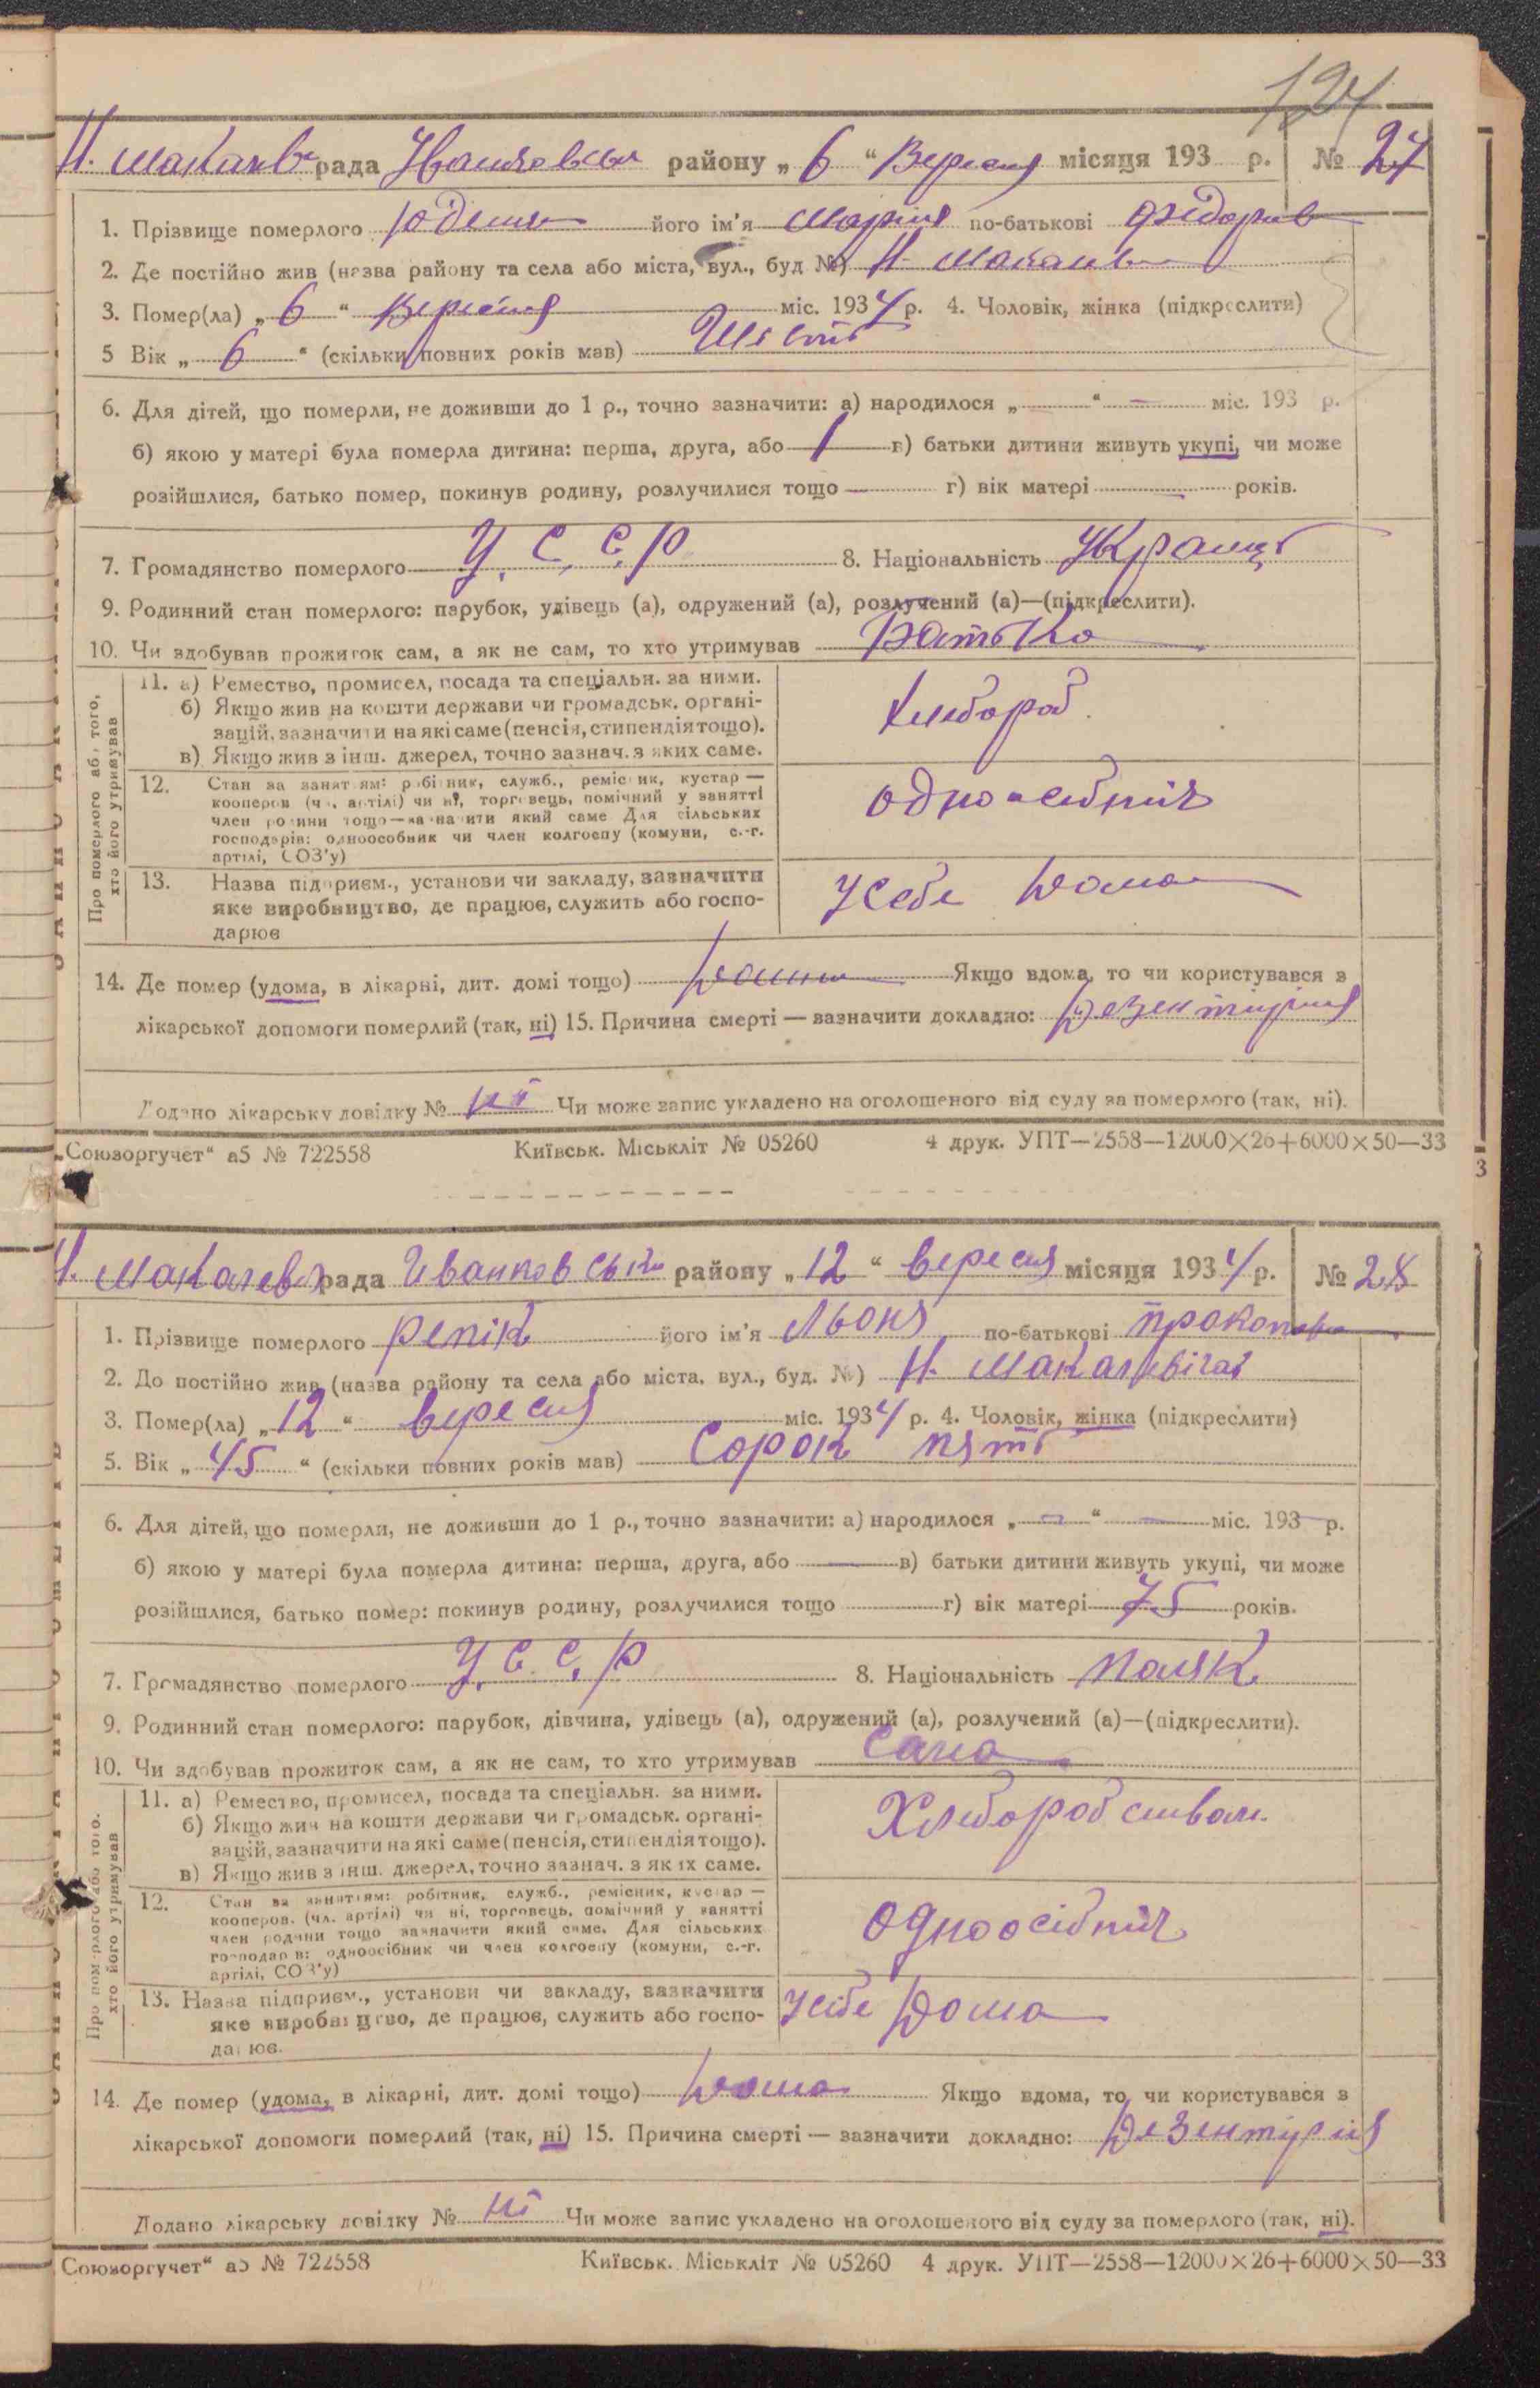 124
Н. Макалев рада Іванковськ району „ 6 “ Вересня місяця 193 р. № 27
1. Прізвище померлого його ім'я Марія по-батькові Федорив
2. Де постійно жив (назва району та села або міста, вул., буд №) Н. Макалев
3. Помер(ла) „ 6 “ Вересня міс. 1934 р. 4. Чоловік, жінка (підкреслити)
5 Вік „ 6 “ (скільки повних років мав) Шість
6. Для дітей, що померли, не доживши до 1 р., точно зазначити: а) народилося „ “ — міс. 193 р.
б) якою у матері була померла дитина: перша, друга, або 1 в) батьки дитини живуть укупі, чи може
розійшлися, батько помер, покинув родину, розлучилися тощо — г) вік матері — років.
7. Громадянство померлого У. С. С. Р 8. Національність Украінці
9. Родинний стан померлого: парубок, удівець (а), одружений (а), розлучений (а)—(підкреслити).
10. Чи здобував прожиток сам, а як не сам, то хто утримував Батько
Про померлого або того, хто його утримував
11. а) Ремество, промисел, посада та спеціальн. за ними.
б) Якщо жив на кошти держави чи громадськ. органі-
зацій, зазначити на які саме (пенсія, стипендія тощо).
в) Якщо жив з інш. джерел, точно зазнач. з яких саме.
Хлебороб
12. Стан за заняттям: робітник, служб., ремісник, кустар —
кооперов (чл. артілі) чи ні, торговець, помічний у занятті
член родини тощо—зазначити який саме Для сільських
господарів: одноособник чи член колгоспу (комуни, с.-г.
артілі, СОЗ'у)
одноосібнік
13. Назва підприєм., установи чи закладу, зазначити
яке виробництво, де працює, служить або госпо-
дарює
У себе Дома
14. Де помер (удома, в лікарні, дит. домі тощо) Дома Якщо вдома, то чи користувався з
лікарської допомоги померлий (так, ні) 15. Причина смерті — зазначити докладно: Дезентирія
Додано лікарську довідку № ні Чи може запис укладено на оголошеного від суду за померлого (так, ні).
„Союзоргучет“ а5 № 722558 Київськ. Міськліт № 05260 4 друк. УПТ—2558—12000×26+6000×50—33
3
Н. Макалев рада Иванковськ району „ 12 “ вересня місяця 1934 р. № 28
1. Прізвище померлого Репік його ім'я Львоня по-батькові Прокопов
2. До постійно жив (назва району та села або міста, вул., буд. №) Н. Макалевічах
3. Помер(ла) „ 12 “ вересня міс. 1934 р. 4. Чоловік, жінка (підкреслити)
5. Вік „ 45 “ (скільки повних років мав) Сорок пять
6. Для дітей, що померли, не доживши до 1 р., точно зазначити: а) народилося „ — “ — міс. 193 р.
б) якою у матері була померла дитина: перша, друга, або — в) батьки дитини живуть укупі, чи може
розійшлися, батько помер: покинув родину, розлучилися тощо г) вік матері 75 років.
7. Громадянство померлого У. С. С. Р 8. Національність Поляк
9. Родинний стан померлого: парубок, дівчина, удівець (а), одружений (а), розлучений (а)—(підкреслити).
10. Чи здобував прожиток сам, а як не сам, то хто утримував Сама
Про померлого або того, хто його утримував
11. а) Ремество, промисел, посада та спеціальн. за ними.
б) Якщо жив на кошти держави чи громадськ. органі-
зацій, зазначити на які саме (пенсія, стипендія тощо).
в) Якщо жив з інш. джерел, точно зазнач. з яких саме.
Хлеборобством
12. Стан за заняттям: робітник, служб., ремісник, кустар —
кооперов. (чл. артілі) чи ні, торговець, помічний у занятті
член родини тощо зазначити який саме. Для сільських
господарів: одноосібник чи член колгоспу (комуни, с.-г.
артілі, СОЗ'у)
Одноосібнік
13. Назва підприєм., установи чи закладу, зазначити
яке виробництво, де працює, служить або госпо-
дарює.
У себе Дома
14. Де помер (удома, в лікарні, дит. домі тощо) Дома Якщо вдома, то чи користувався з
лікарської допомоги померлий (так, ні) 15. Причина смерті — зазначити докладно: Дезентурія
Додано лікарську довідку № ні Чи може запис укладено на оголошеного від суду за померлого (так, ні).
Союзоргучет“ а5 № 722558 Київськ. Міськліт № 05260 4 друк. УПТ—2558—12000×26+6000×50—33